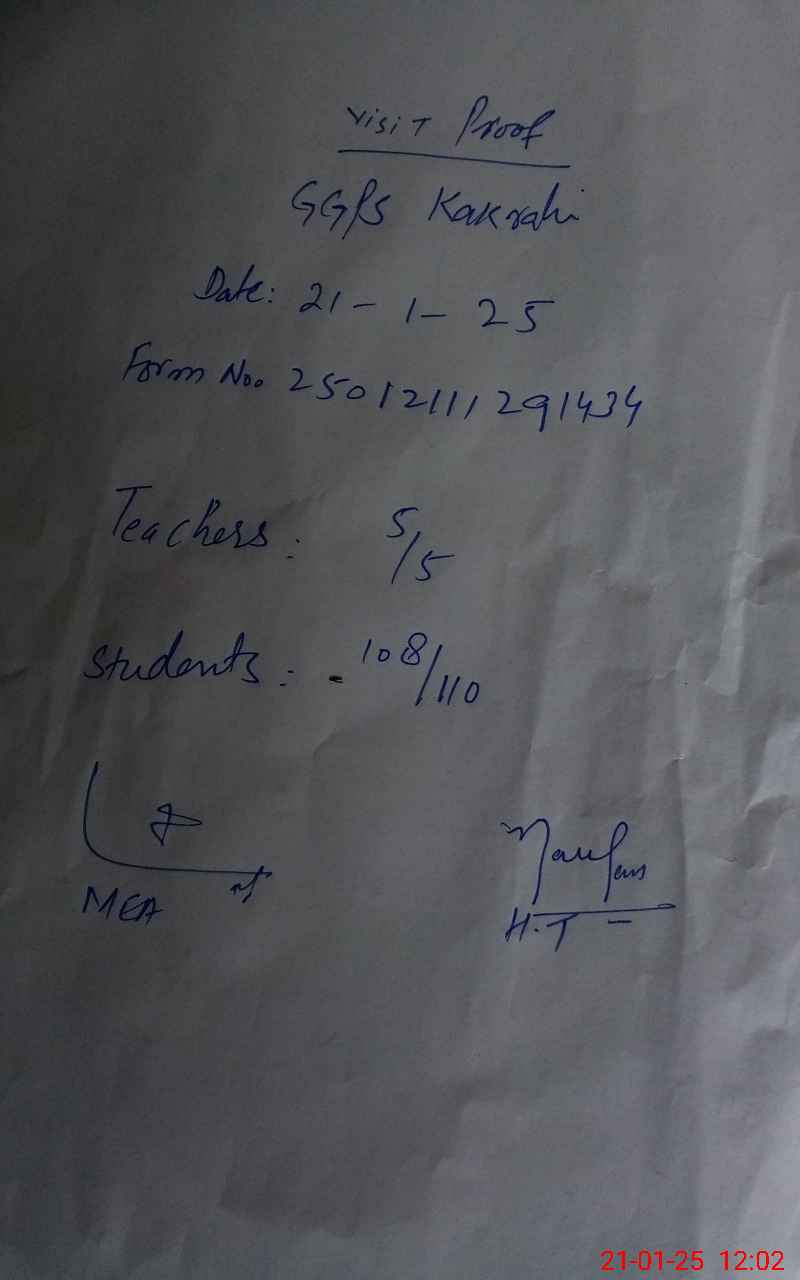 Visit Proof
GGPS Kakrahi
Date: 21-1-25
Form No. 250121111291434
Teachers: 5/5
Students: 108/110
MEA
H.T
21-01-25 12:02